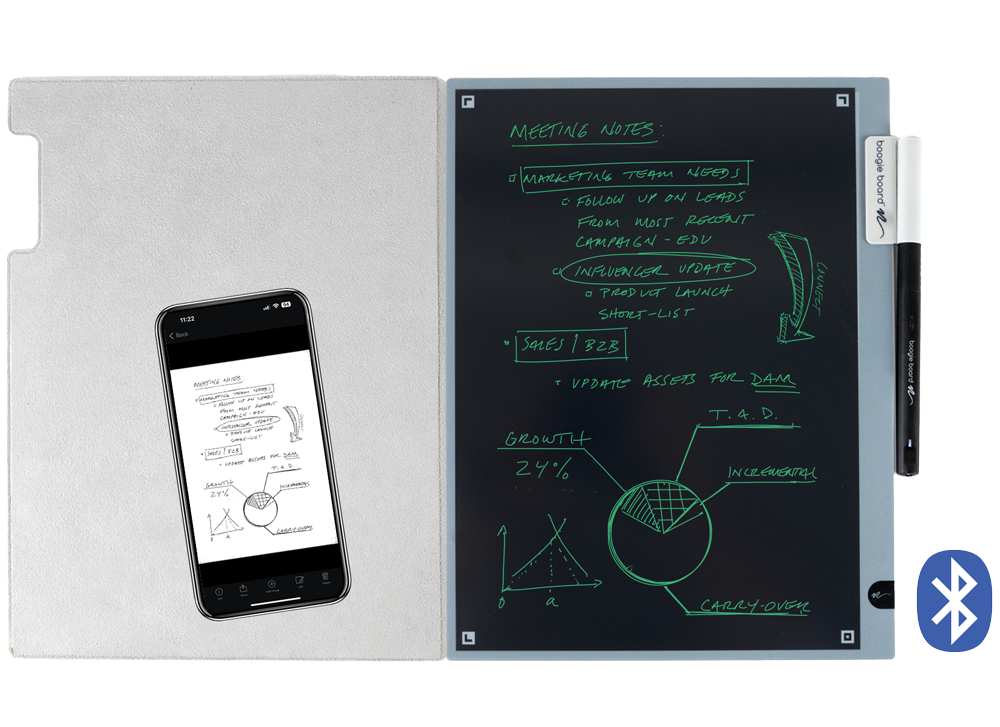 MEETING NOTES:
MARKETING TEAM NEEDS
FOLLOW UP ON LEADS
FROM MOST RECENT
CAMPAIGN - EDU
INFLUENCER UPDATE
PRODUCT LAUNCH
SHORT-LIST
CONNECT
SALES | B2B
UPDATE ASSETS FOR DAM
T.A.D.
GROWTH
24%
INCREMENTAL
CARRY-OVER
0
a
boogie board
boogie board
11:22
Back
MEETING NOTES:
MARKETING TEAM NEEDS
FOLLOW UP ON LEADS
FROM MOST RECENT
CAMPAIGN - EDU
INFLUENCER UPDATE
PRODUCT LAUNCH
SHORT-LIST
SALES | B2B
UPDATE ASSETS FOR DAM
T.A.D.
GROWTH
24%
INCREMENTAL
CARRY-OVER
0
a